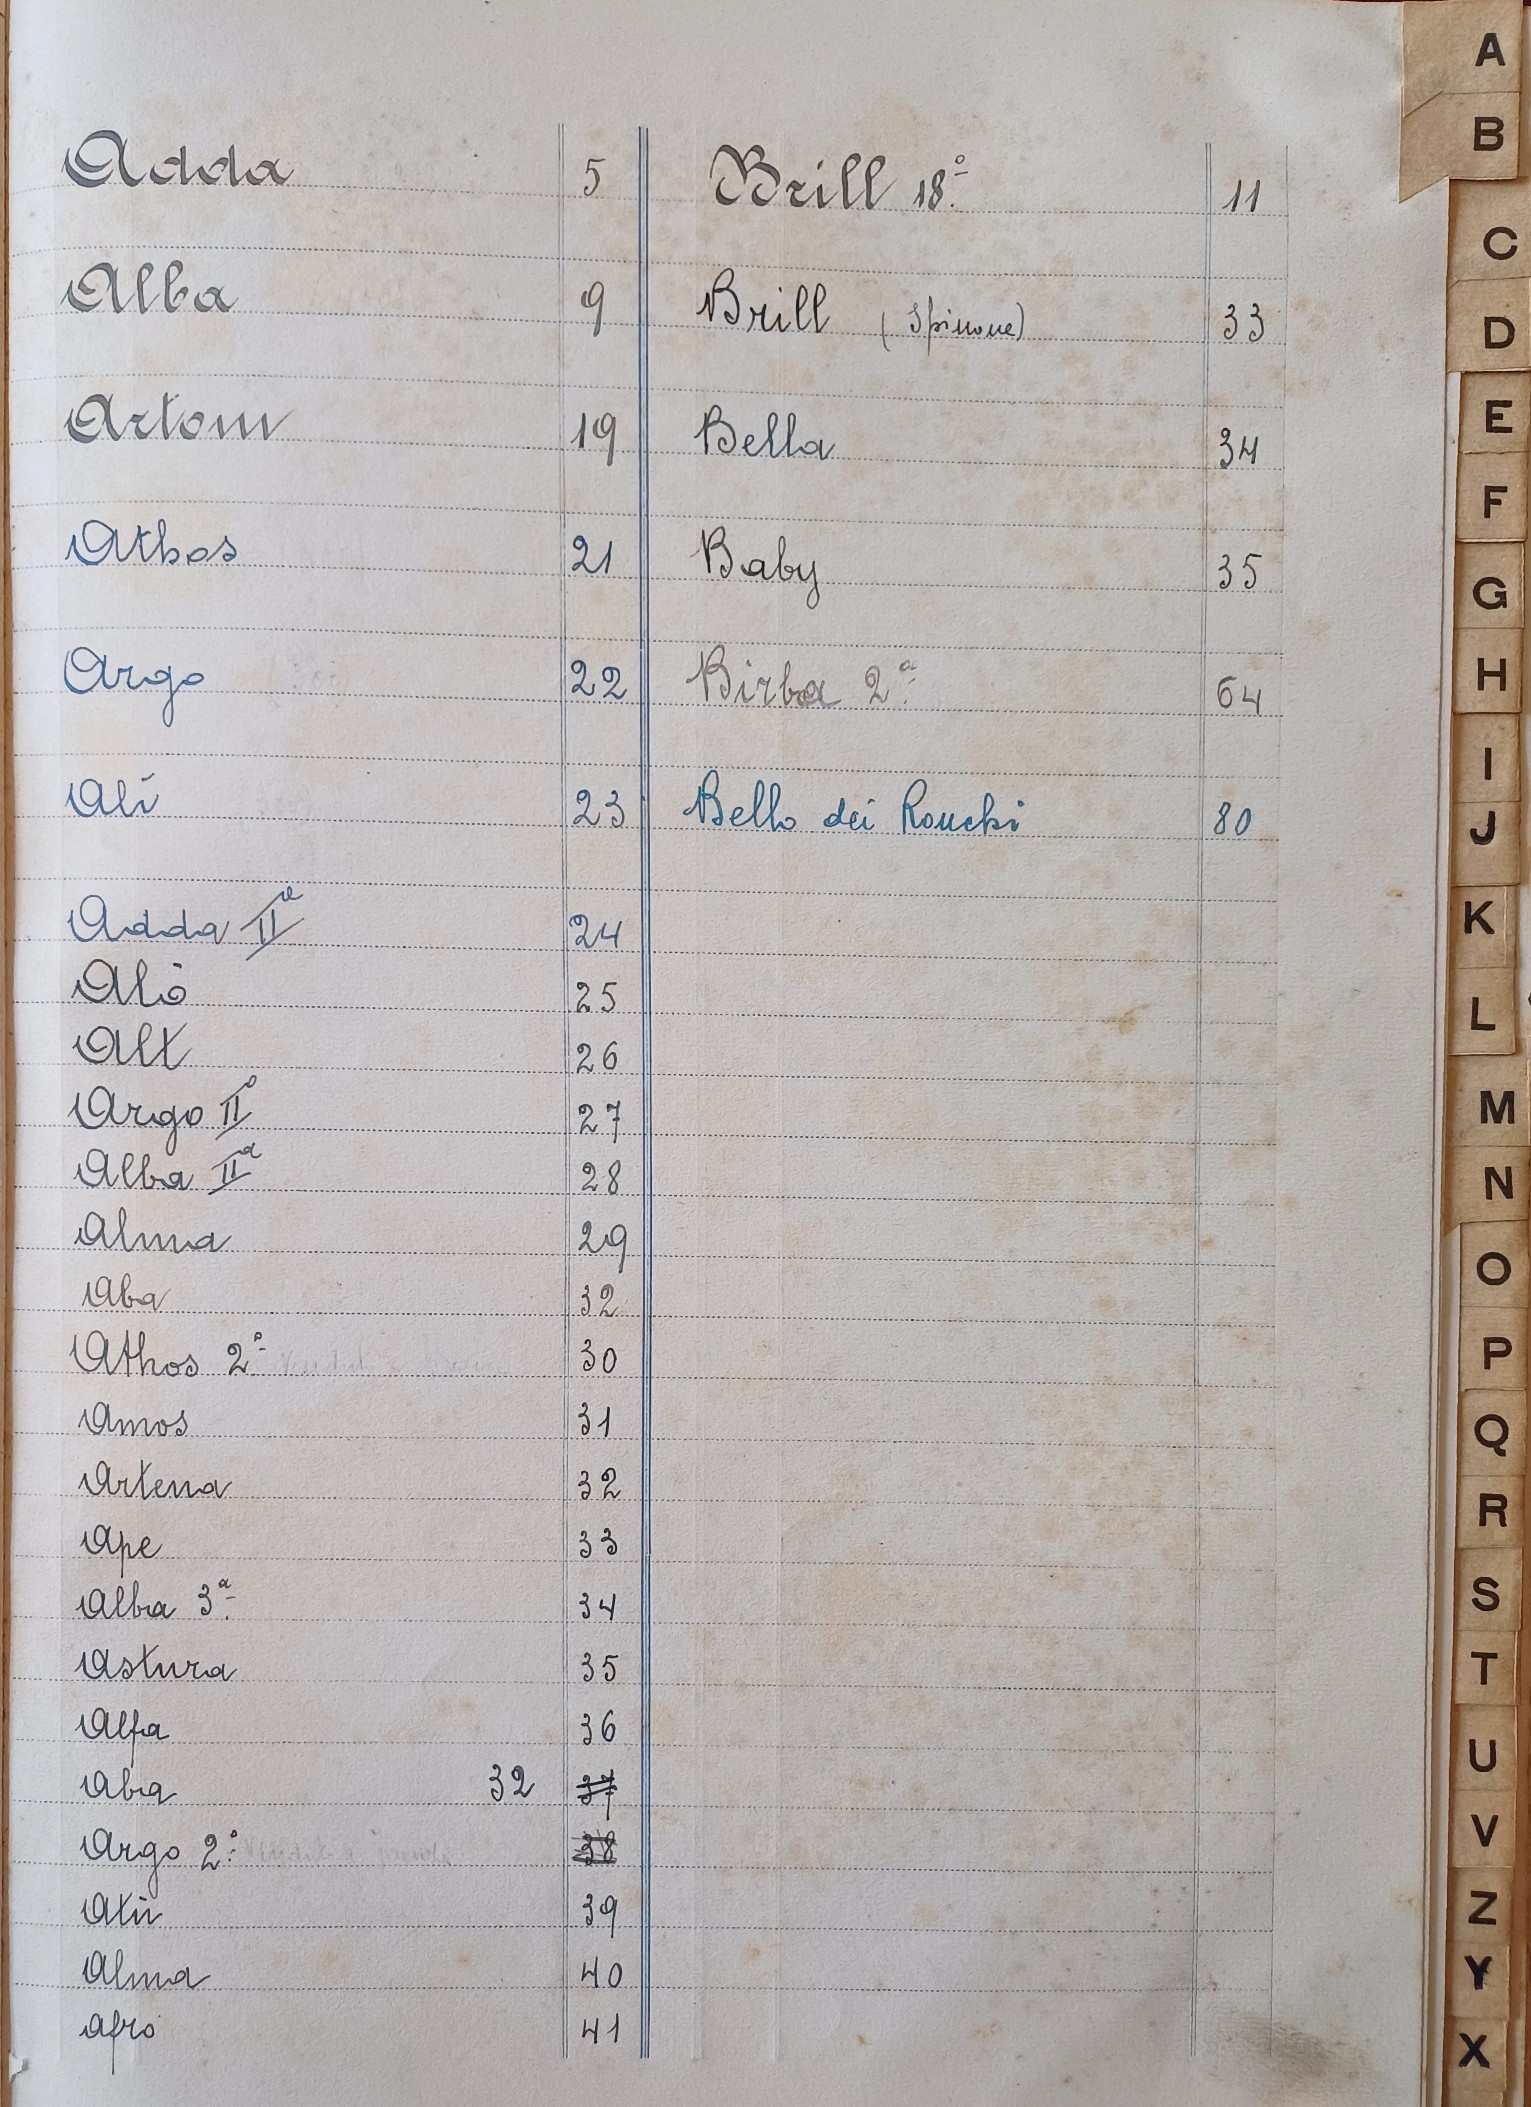 Adda 5
Alba 9
Artom 19
Athos 21
Argo 22
Alì 23
Adda IIª 24
Alò 25
Alt 26
Argo II° 27
Alba IIª 28
Alma 29
Aba 32
Athos 2° 30
Amos 31
Artena 32
Ape 33
Alba 3ª 34
Astura 35
Alfa 36
Aba 32 37
Argo 2° 38
Atù 39
Alma 40
Afro 41
Brill 18° 11
Brill (Spinone) 33
Bella 34
Baby 35
Birba 2ª 64
Bello dei Ronchi 80
A
B
C
D
E
F
G
H
I
J
K
L
M
N
O
P
Q
R
S
T
U
V
Z
Y
X